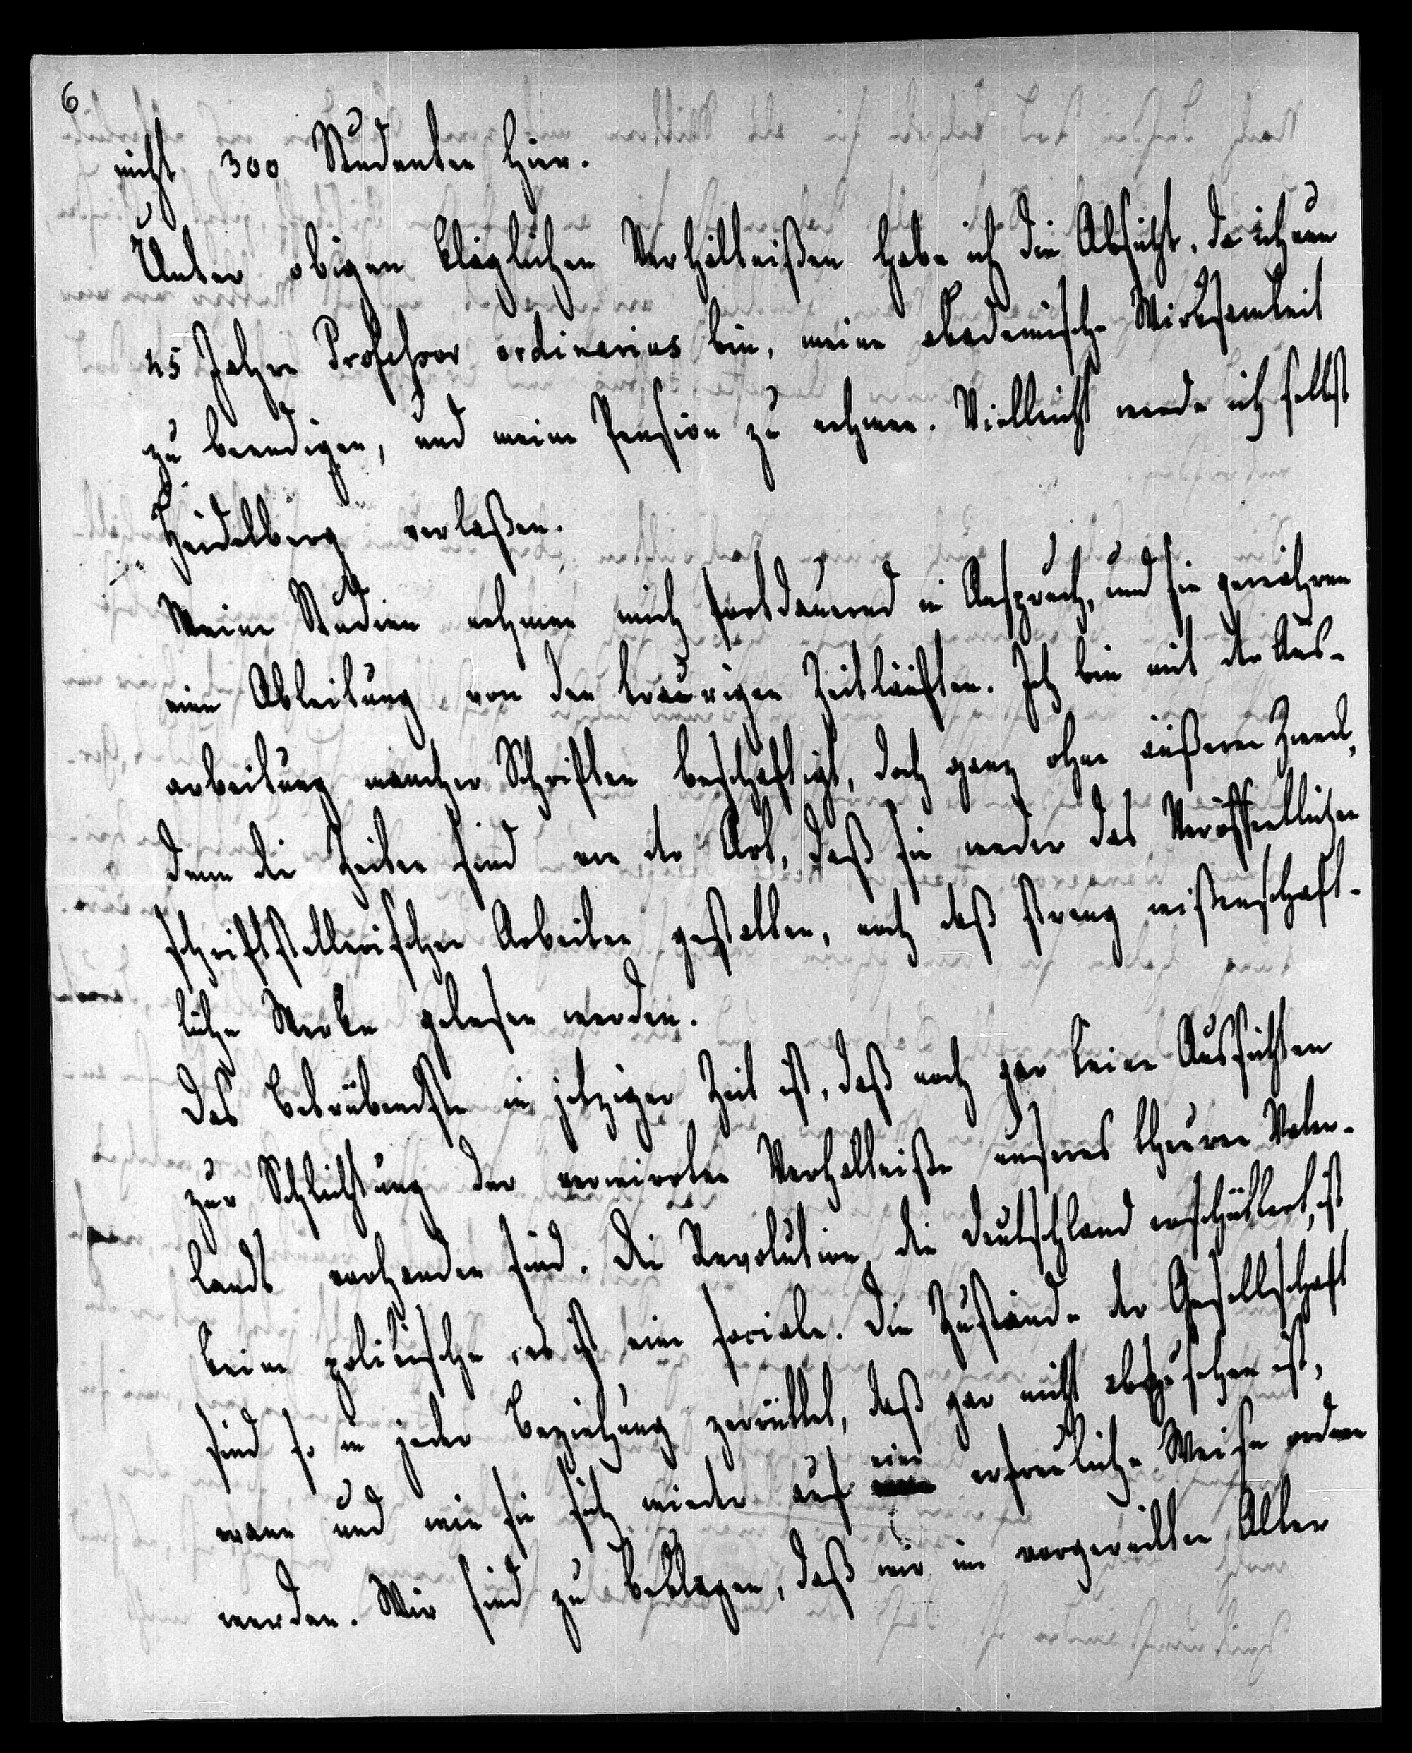 6
nicht 300 Studenten hier.
Unter obigen kläglichen Verhältnißen habe ich die Absicht, da ich nun
45 Jahre Professor ordinarius bin, meine akademische Wirksamkeit
zu beendigen, und meine Pension zu nehmen. Vielleicht werde ich selbst
Heidelberg verlaßen.
Meine Studien nehmen mich fortdauernd in Anspruch, und sie gewähren
eine Ableitung von den traurigen Zeitläuften. Ich bin mit der Aus-
arbeitung mancher Schriften beschäftigt, doch ganz ohne äußeren Zweck,
denn die Zeiten sind von der Art, daß sie weder das Veröffentlichen
schriftstellerischer Arbeiten gestatten, noch daß streng wißenschaft-
liche Werke gelesen werden.
Das Betrübendste in jetziger Zeit ist, daß noch gar keine Aussichten
zur Schlichtung der verwirrten Verhältniße unseres theuren Vater-
lands vorhanden sind. Die Revolution, die Deutschland erschüttert, ist
keine politische, es ist eine sociale. Die Zustände der Gesellschaft
sind so in jeder Beziehung zerrüttet, daß gar nicht abzusehen ist,
wann und wie sie sich wieder auf eine erfreuliche Weise ordnen
werden. Wir sind zu beklagen, daß wir im vorgerückten Alter